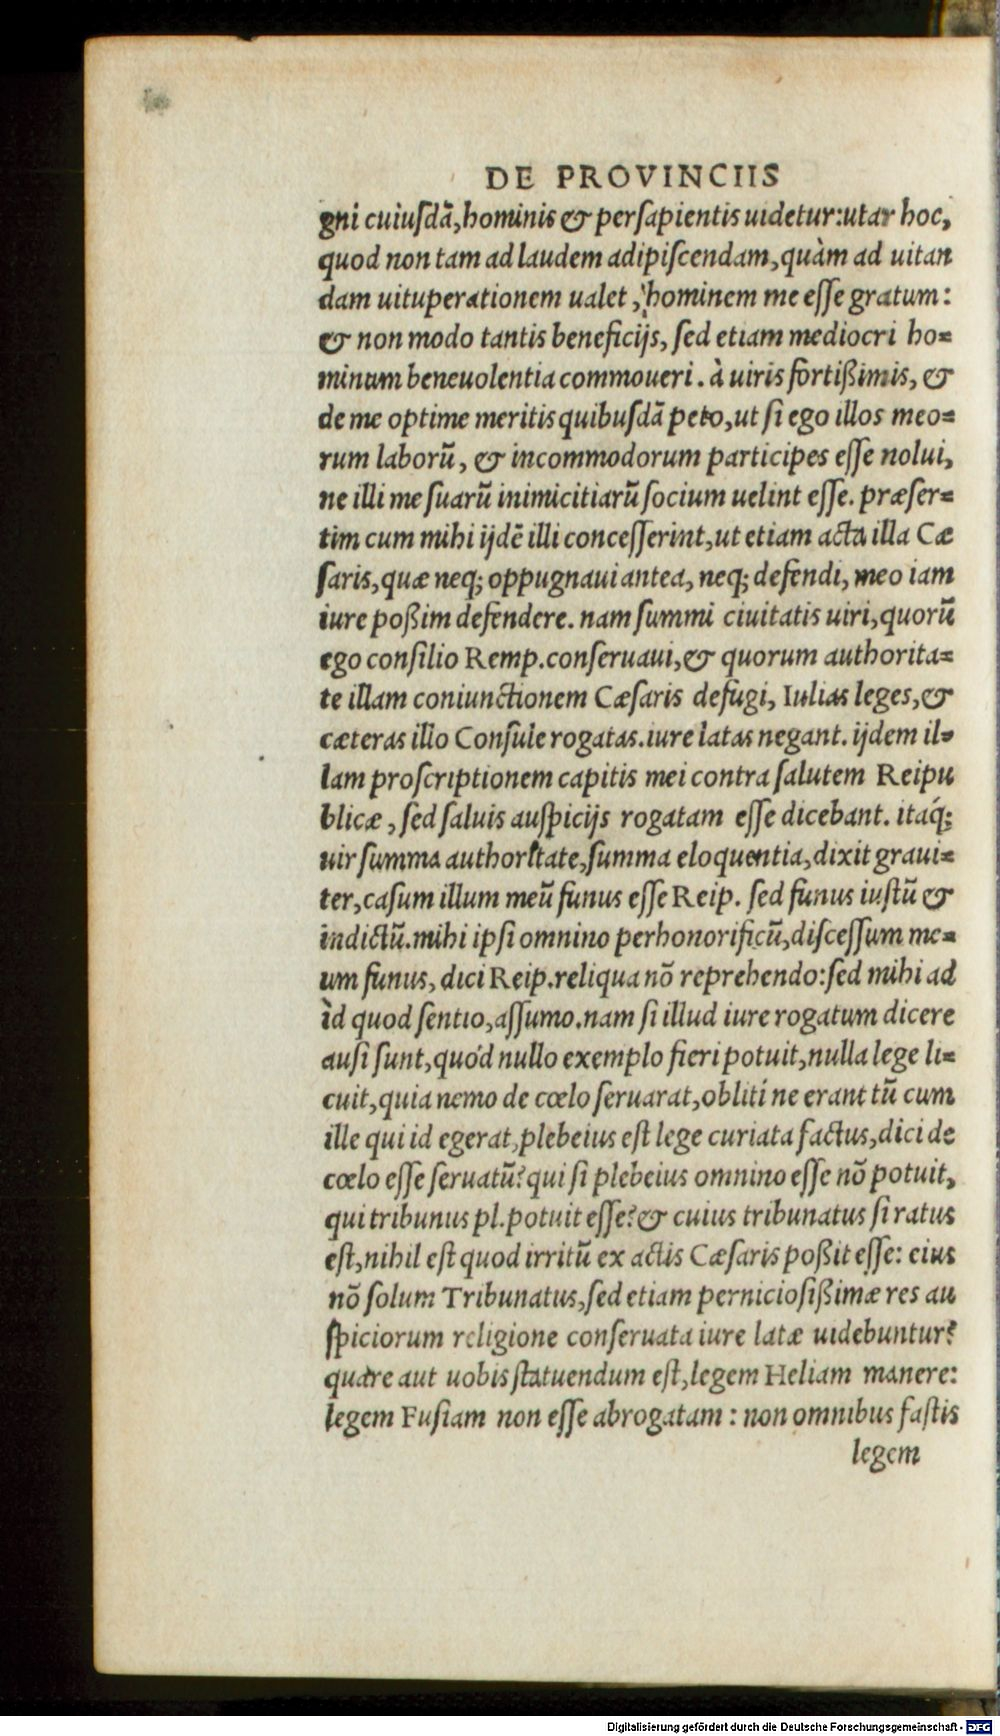 DE PROVINCIIS
gni cuiuſdã, hominis & perſapientis uidetur: utar hoc,
quod non tam ad laudem adipiſcendam, quàm ad uitan
dam uituperationem ualet, hominem me eſſe gratum:
& non modo tantis beneficijs, ſed etiam mediocri ho=
minum beneuolentia commoueri. à uiris fortißimis, &
de me optime meritis quibuſdã peto, ut ſi ego illos meo=
rum laborũ, & incommodorum participes eſſe nolui,
ne illi me ſuarũ inimicitiarũ ſocium uelint eſſe. præſer=
tim cum mihi ijdẽ illi conceſſerint, ut etiam acta illa Cæ
ſaris, quæ neq; oppugnaui antea, neq; defendi, meo iam
iure poßim defendere. nam ſummi ciuitatis uiri, quorũ
ego conſilio Remp. conſeruaui, & quorum authorita=
te illam coniunctionem Cæſaris defugi, Iulias leges, &
cæteras illo Conſule rogatas. iure latas negant. ijdem il=
lam proſcriptionem capitis mei contra ſalutem Reipu
blicæ, ſed ſaluis auſpicijs rogatam eſſe dicebant. itaq́;
uir ſumma authoritate, ſumma eloquentia, dixit graui=
ter, caſum illum meũ funus eſſe Reip. ſed funus iuſtũ &
indictũ. mihi ipſi omnino perhonorificũ, diſceſſum me=
um funus, dici Reip. reliqua nõ reprehendo: ſed mihi ad
ìd quod ſentio, aſſumo. nam ſi illud iure rogatum dicere
auſi ſunt, quód nullo exemplo fieri potuit, nulla lege li=
cuit, quia nemo de cœlo ſeruarat, obliti ne erant tũ cum
ille qui id egerat, plebeius eſt lege curiata factus, dici de
cœlo eſſe ſeruatũ? qui ſi plebeius omnino eſſe nõ potuit,
qui tribunus pl. potuit eſſe? & cuius tribunatus ſi ratus
eſt, nihil eſt quod irritũ ex actis Cæſaris poßit eſſe: eius
nõ ſolum Tribunatus, ſed etiam pernicioſißimæ res au
ſpiciorum religione conſeruata iure latæ uidebuntur?
quare aut uobis ſtatuendum eſt, legem Heliam manere:
legem Fuſiam non eſſe abrogatam: non omnibus faſtis
legem
Digitalisierung gefördert durch die Deutsche Forschungsgemeinschaft - DFG